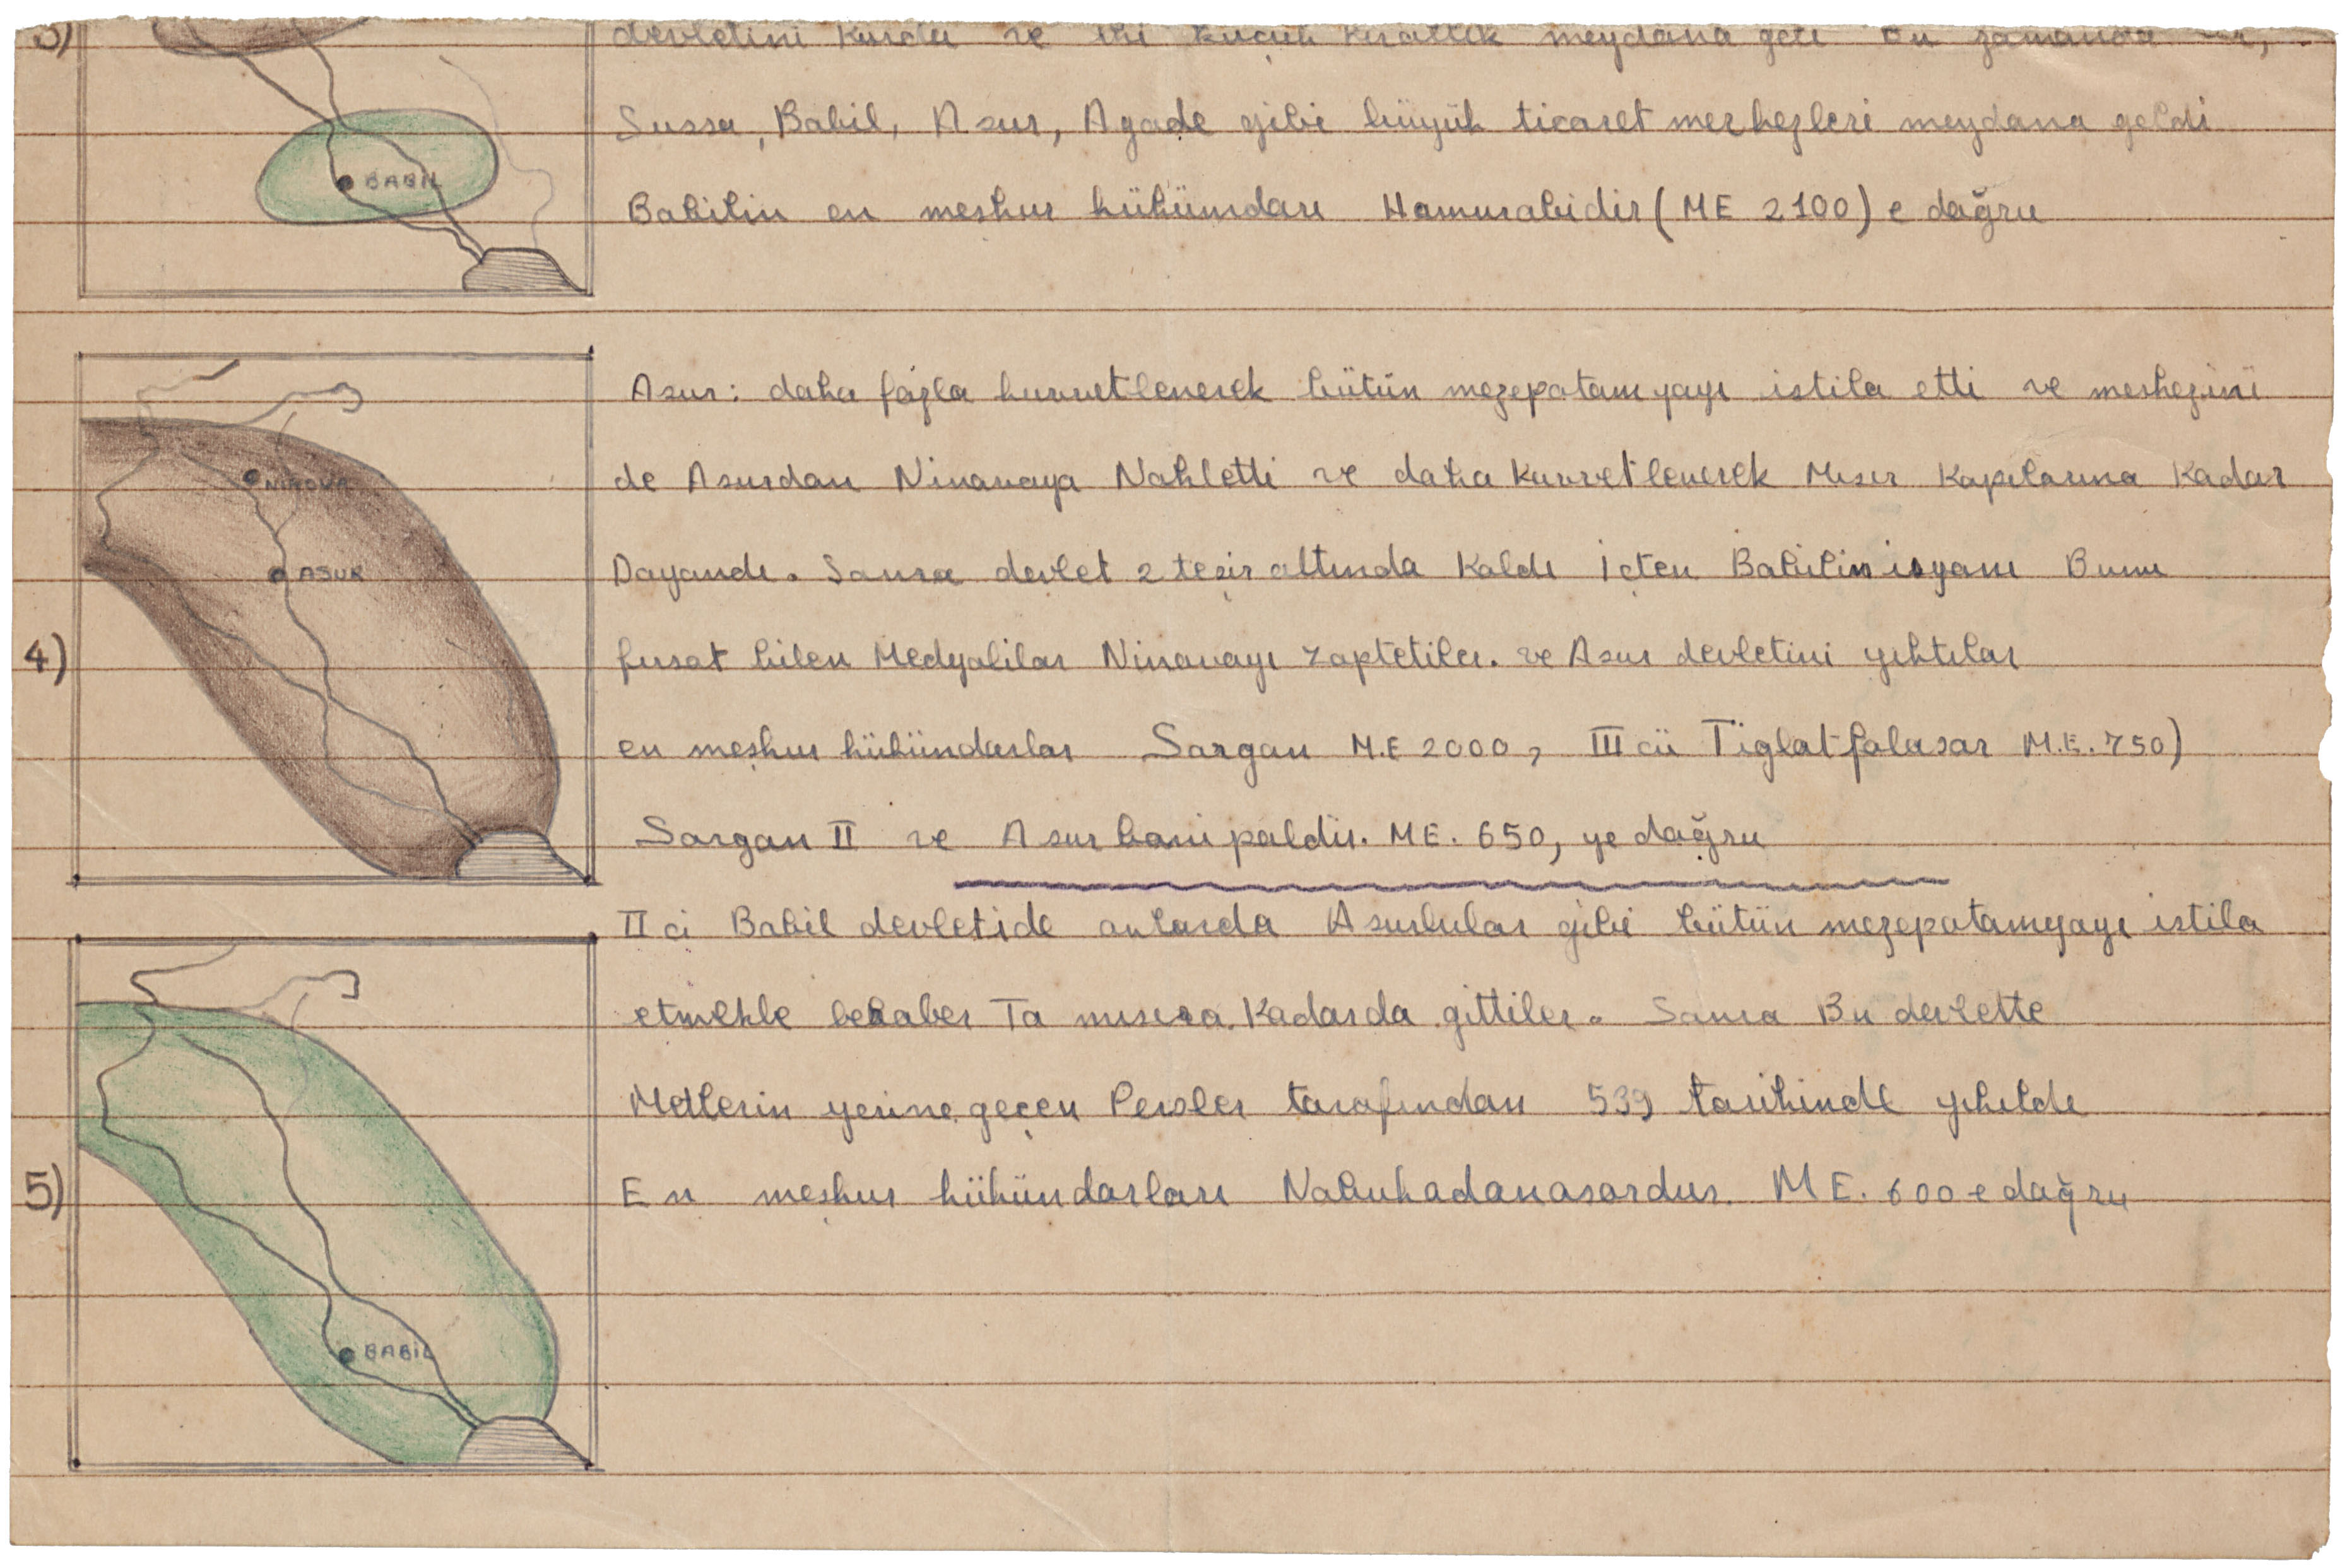 3)
devletini kurdu ve iki küçük kırallık meydana geti Bu zamanda
Sussa, Babil, Asur, Agade gibi büyük ticaret merkezleri meydana geldi
Babilin en meshur hükümdarı Hamurabidir (ME 2100) e dağru
BABİL
Asur: daha fazla kuvvetlenerek bütün mezepotamyayı istila etti ve merkezini
de Asurdan Ninavaya Nakletti ve daha kuvvetlenerek Mısır Kapılarına Kadar
NİNOVA
Dayandı. Sanra devlet 2 tesir altında Kaldı İçten Babilin isyanı Bunu
ASUR
4)
fırsat bilen Medyalılar Ninavayı zaptetiler. ve Asur devletini yıktılar
en meşhur hükündarlar Sargan M.E 2000, III cü Tiglatfalasar M.E. 750)
Sargan II ve Asurbanipaldir. ME. 650, ye dağru
II ci Babil devletide anlarda Asurlular gibi bütün mezepotamyayı istila
etmekle beraber Ta mısıra Kadarda gittiler. Sanra Bu devlette
Medlerin yerine geçen Persler tarafından 539 tarihinde yıkıldı
5)
En meshur hükündarları Nabukadanasardur. ME. 600 e dağru
BABİL